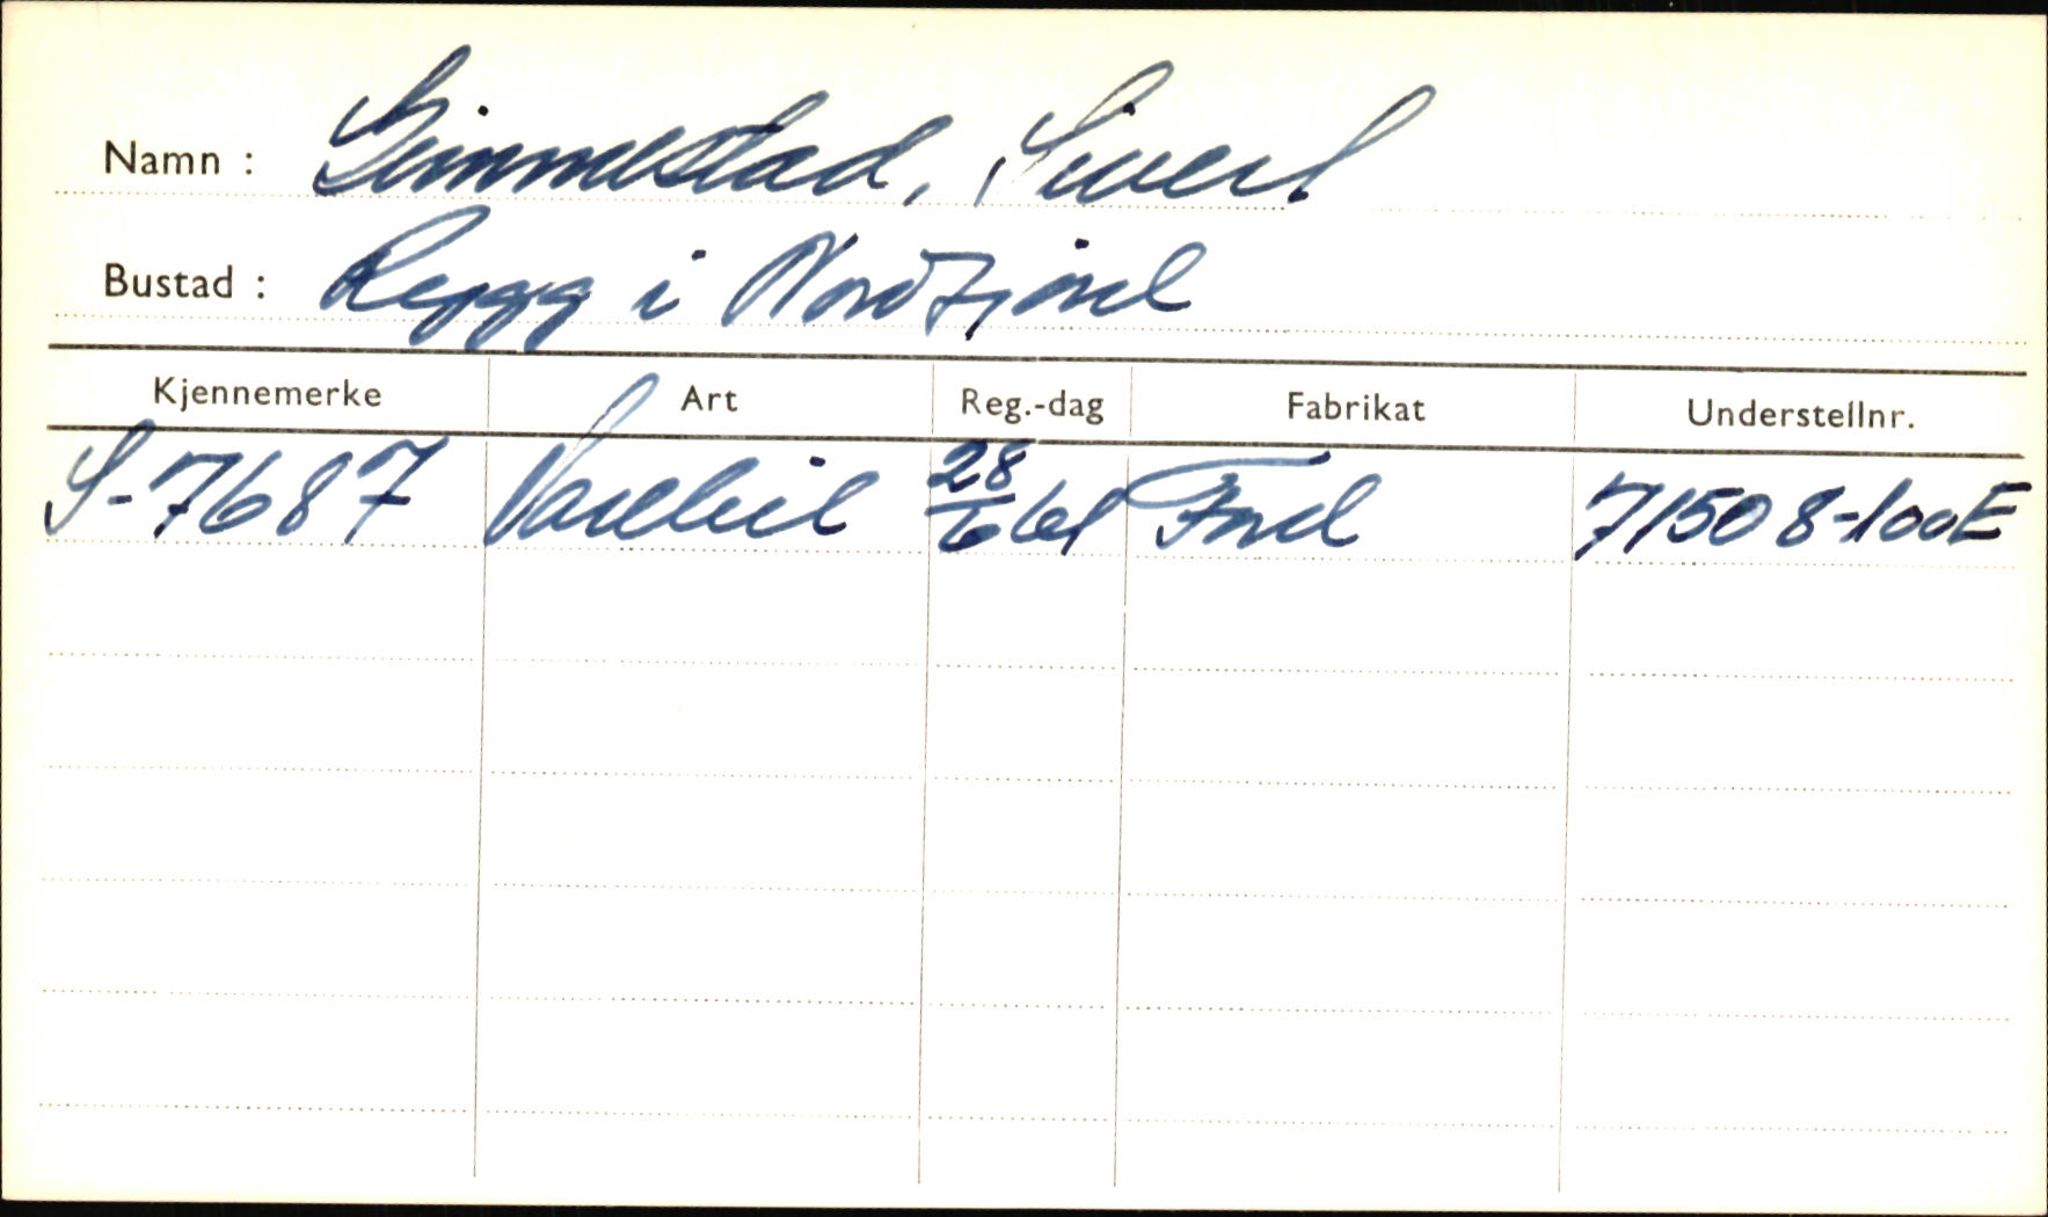 Namn : Gimmestad, Sivert
Bustad : Reygg i Nordfjord
Kjennemerke Art Reg.-dag Fabrikat Understellnr.
S-7687 Varebil 28/6 61 Ford 71508-100E